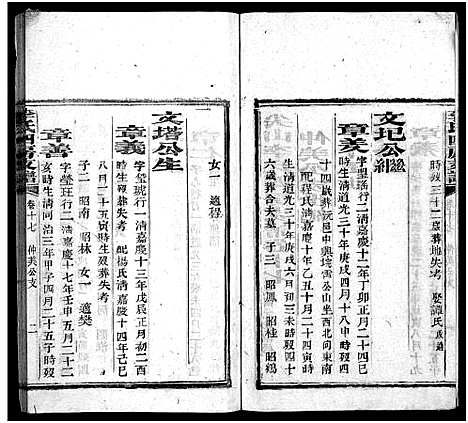 時歿三十二歲葬地失考 娶譚氏改適
文圯公繼
章美
字璺瑤行一清嘉慶十二年丁卯正月二十四巳
時生清道光三十年庚戌四月十八申時歿四
十四歲葬沅邑中興堡雷公山坐西北向東南
配程氏清嘉慶十年乙丑十月二十四寅時
生清道光三十年庚戌六月初三未時歿四十
六歲葬合夫墓 子三 昭鳳 昭桂 昭鷄
女一 適程
文塔公生
章義
字璺琥行一清嘉慶十三年戊辰正月初二酉
時生歿葬失考 配楊氏清嘉慶十四年己巳
八月二十五寅時生歿葬失考
子二 昭南 昭林 女一 適樊
章善
字璺班行二清嘉慶十七年壬申五月二十二
亥時生清同治三年甲子四月二十五子時歿
卷十七 仲夫公支 二